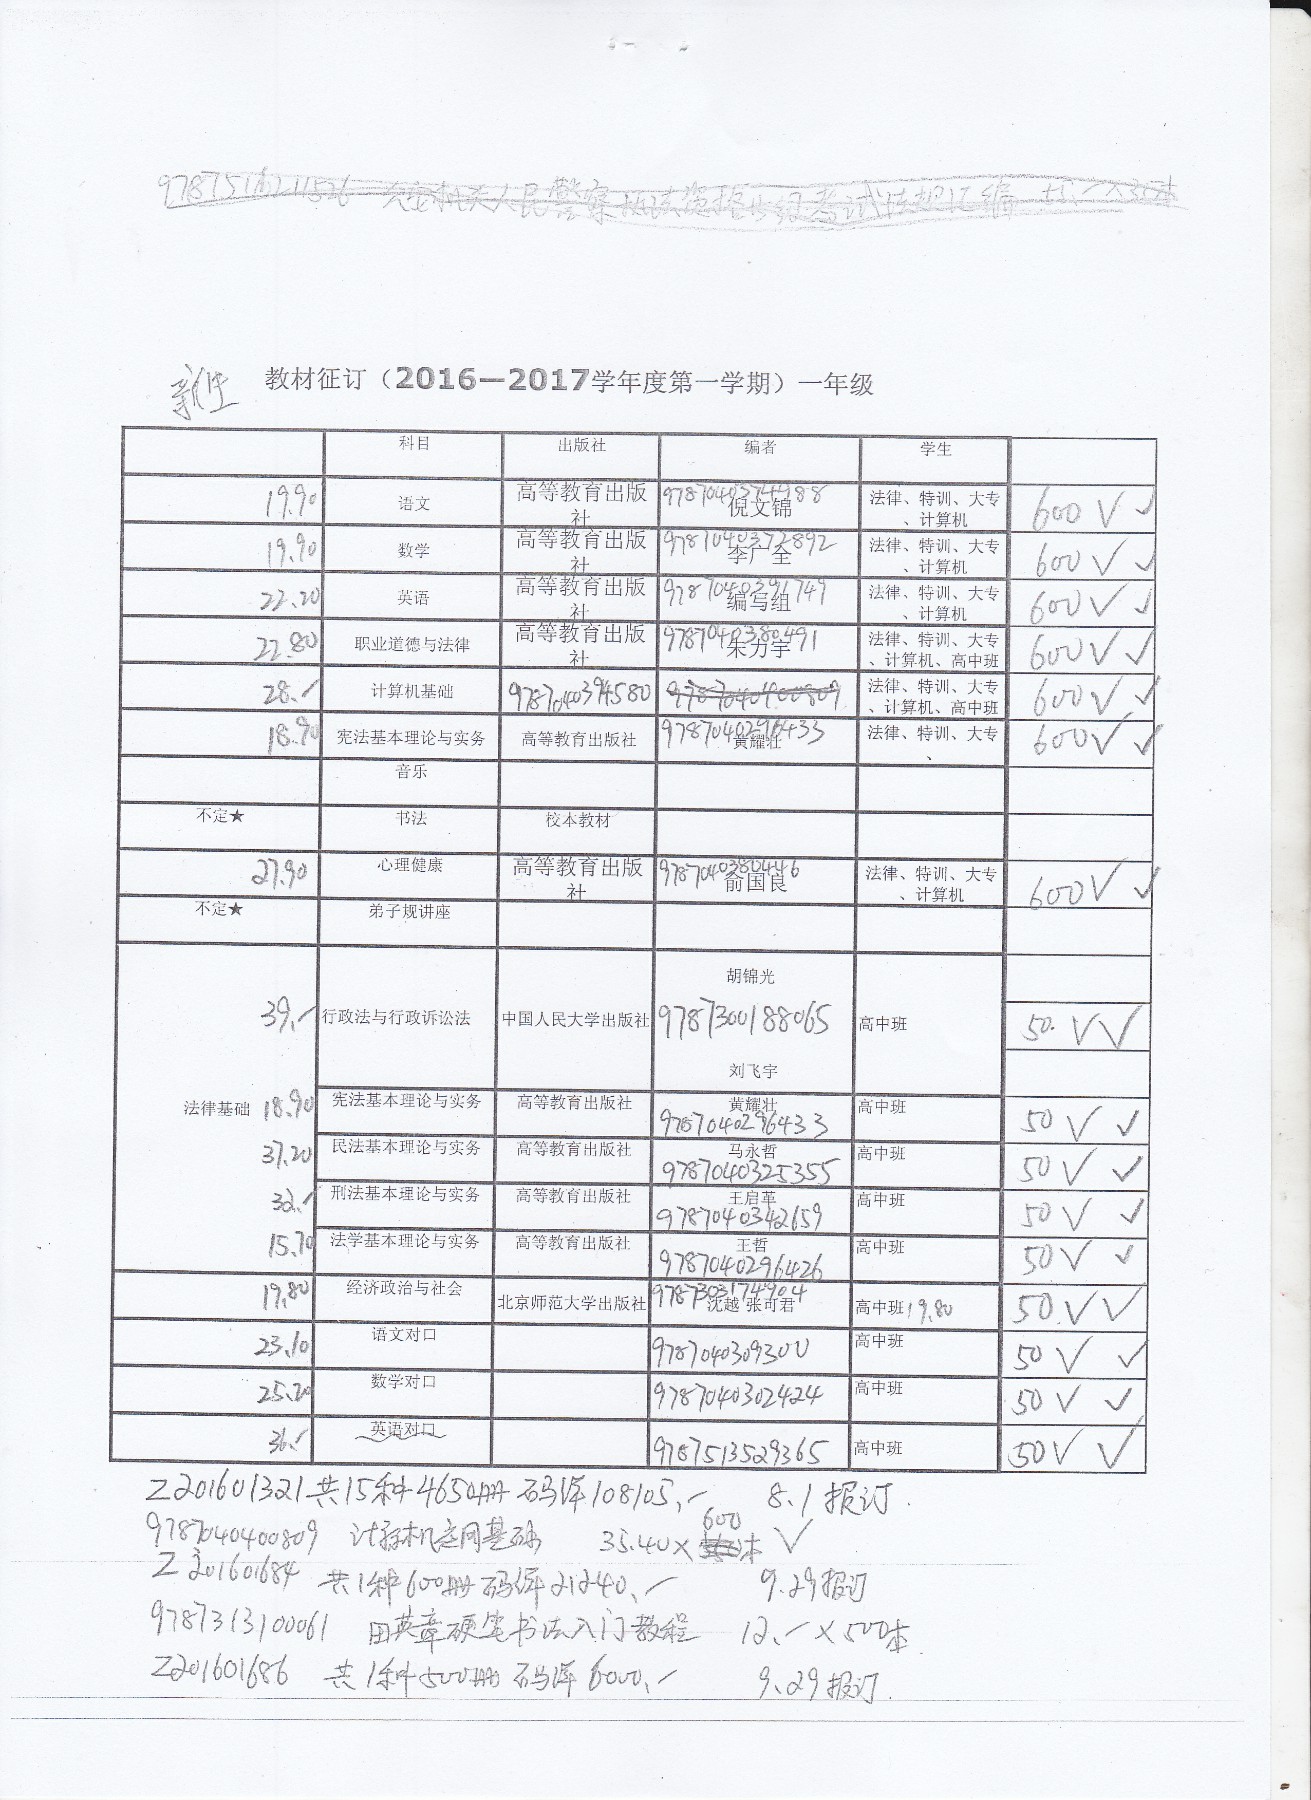 新生 教材征订（2016—2017学年度第一学期）一年级
科目 出版社 编者 学生
19.90 语文 高等教育出版社 9787040374988 倪文锦 法律、特训、大专、计算机 600 √ √
19.90 数学 高等教育出版社 9787040372892 李广全 法律、特训、大专、计算机 600 √ √
22.20 英语 高等教育出版社 9787040391749 编写组 法律、特训、大专、计算机 600 √ √
22.80 职业道德与法律 高等教育出版社 9787040380491 朱力宇 法律、特训、大专、计算机、高中班 600 √ √
28.- 计算机基础 9787040394580 9787040400809 法律、特训、大专、计算机、高中班 600 √ √
18.90 宪法基本理论与实务 高等教育出版社 9787040296433 黄耀壮 法律、特训、大专、 600 √ √
音乐
不定★ 书法 校本教材
27.90 心理健康 高等教育出版社 9787040380446 俞国良 法律、特训、大专、计算机 600 √ √
不定★ 弟子规讲座
胡锦光
39.- 行政法与行政诉讼法 中国人民大学出版社 9787300188065 高中班 50. √ √
刘飞宇
法律基础 18.90 宪法基本理论与实务 高等教育出版社 黄耀壮 9787040296433 高中班 50 √ √
37.20 民法基本理论与实务 高等教育出版社 马永哲 9787040325355 高中班 50 √ √
刑法基本理论与实务 高等教育出版社 王启革 9787040342659 高中班 50 √ √
15.70 法学基本理论与实务 高等教育出版社 王哲 9787040296426 高中班 50 √ √
19.80 经济政治与社会 北京师范大学出版社 9787303174904 沈越 张可君 高中班 19.80 50 √ √
23.10 语文对口 978704030930 高中班 50 √ √
25.20 数学对口 9787040302424 高中班 50 √ √
36.- 英语对口 9787513529365 高中班 50 √ √
Z201601321 共15种4650册 码洋108105.- 8.1报订.
9787040400809 计算机应用基础 35.40×600本 √
Z201601684 共1种600册 码洋21240.- 9.29报订
9787313100061 田英章硬笔书法入门教程 12.-×500本
Z201601686 共1种500册 码洋6000.- 9.29报订.